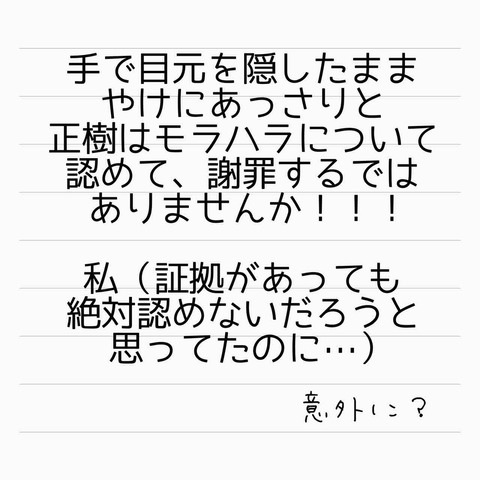 手で目元を隠したまま
やけにあっさりと
正樹はモラハラについて
認めて、謝罪するでは
ありませんか！！！
私（証拠があっても
絶対認めないだろうと
思ってたのに…）
意外に？